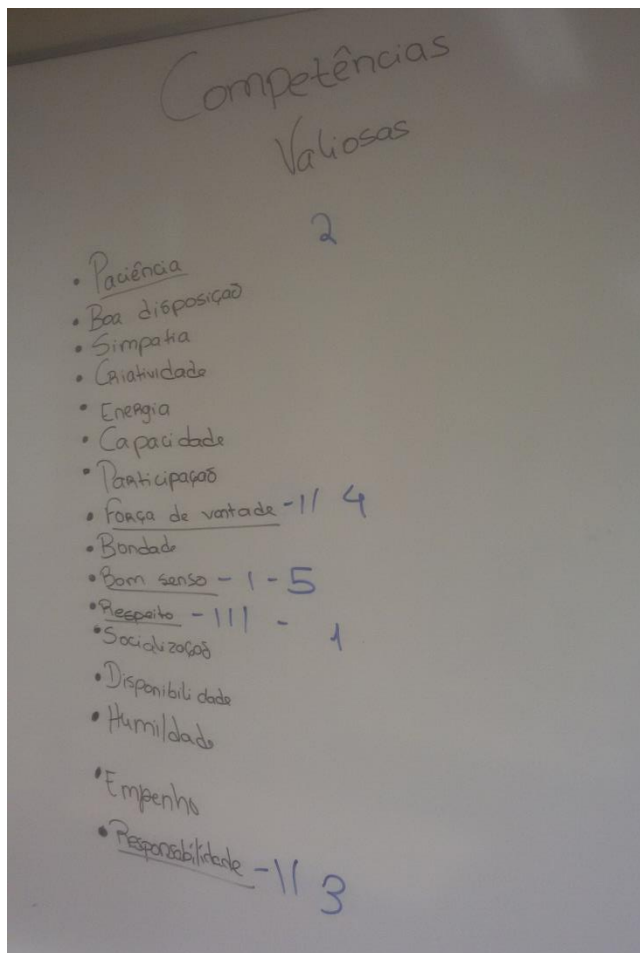 Competências
Valiosas
2
• Paciência
• Boa disposição
• Simpatia
• Criatividade
• Energia
• Capacidade
• Participação
• Força de vontade - II 4
• Bondade
• Bom senso - I - 5
• Respeito - III - 1
• Socialização
• Disponibilidade
• Humildade
• Empenho
• Responsabilidade - II 3